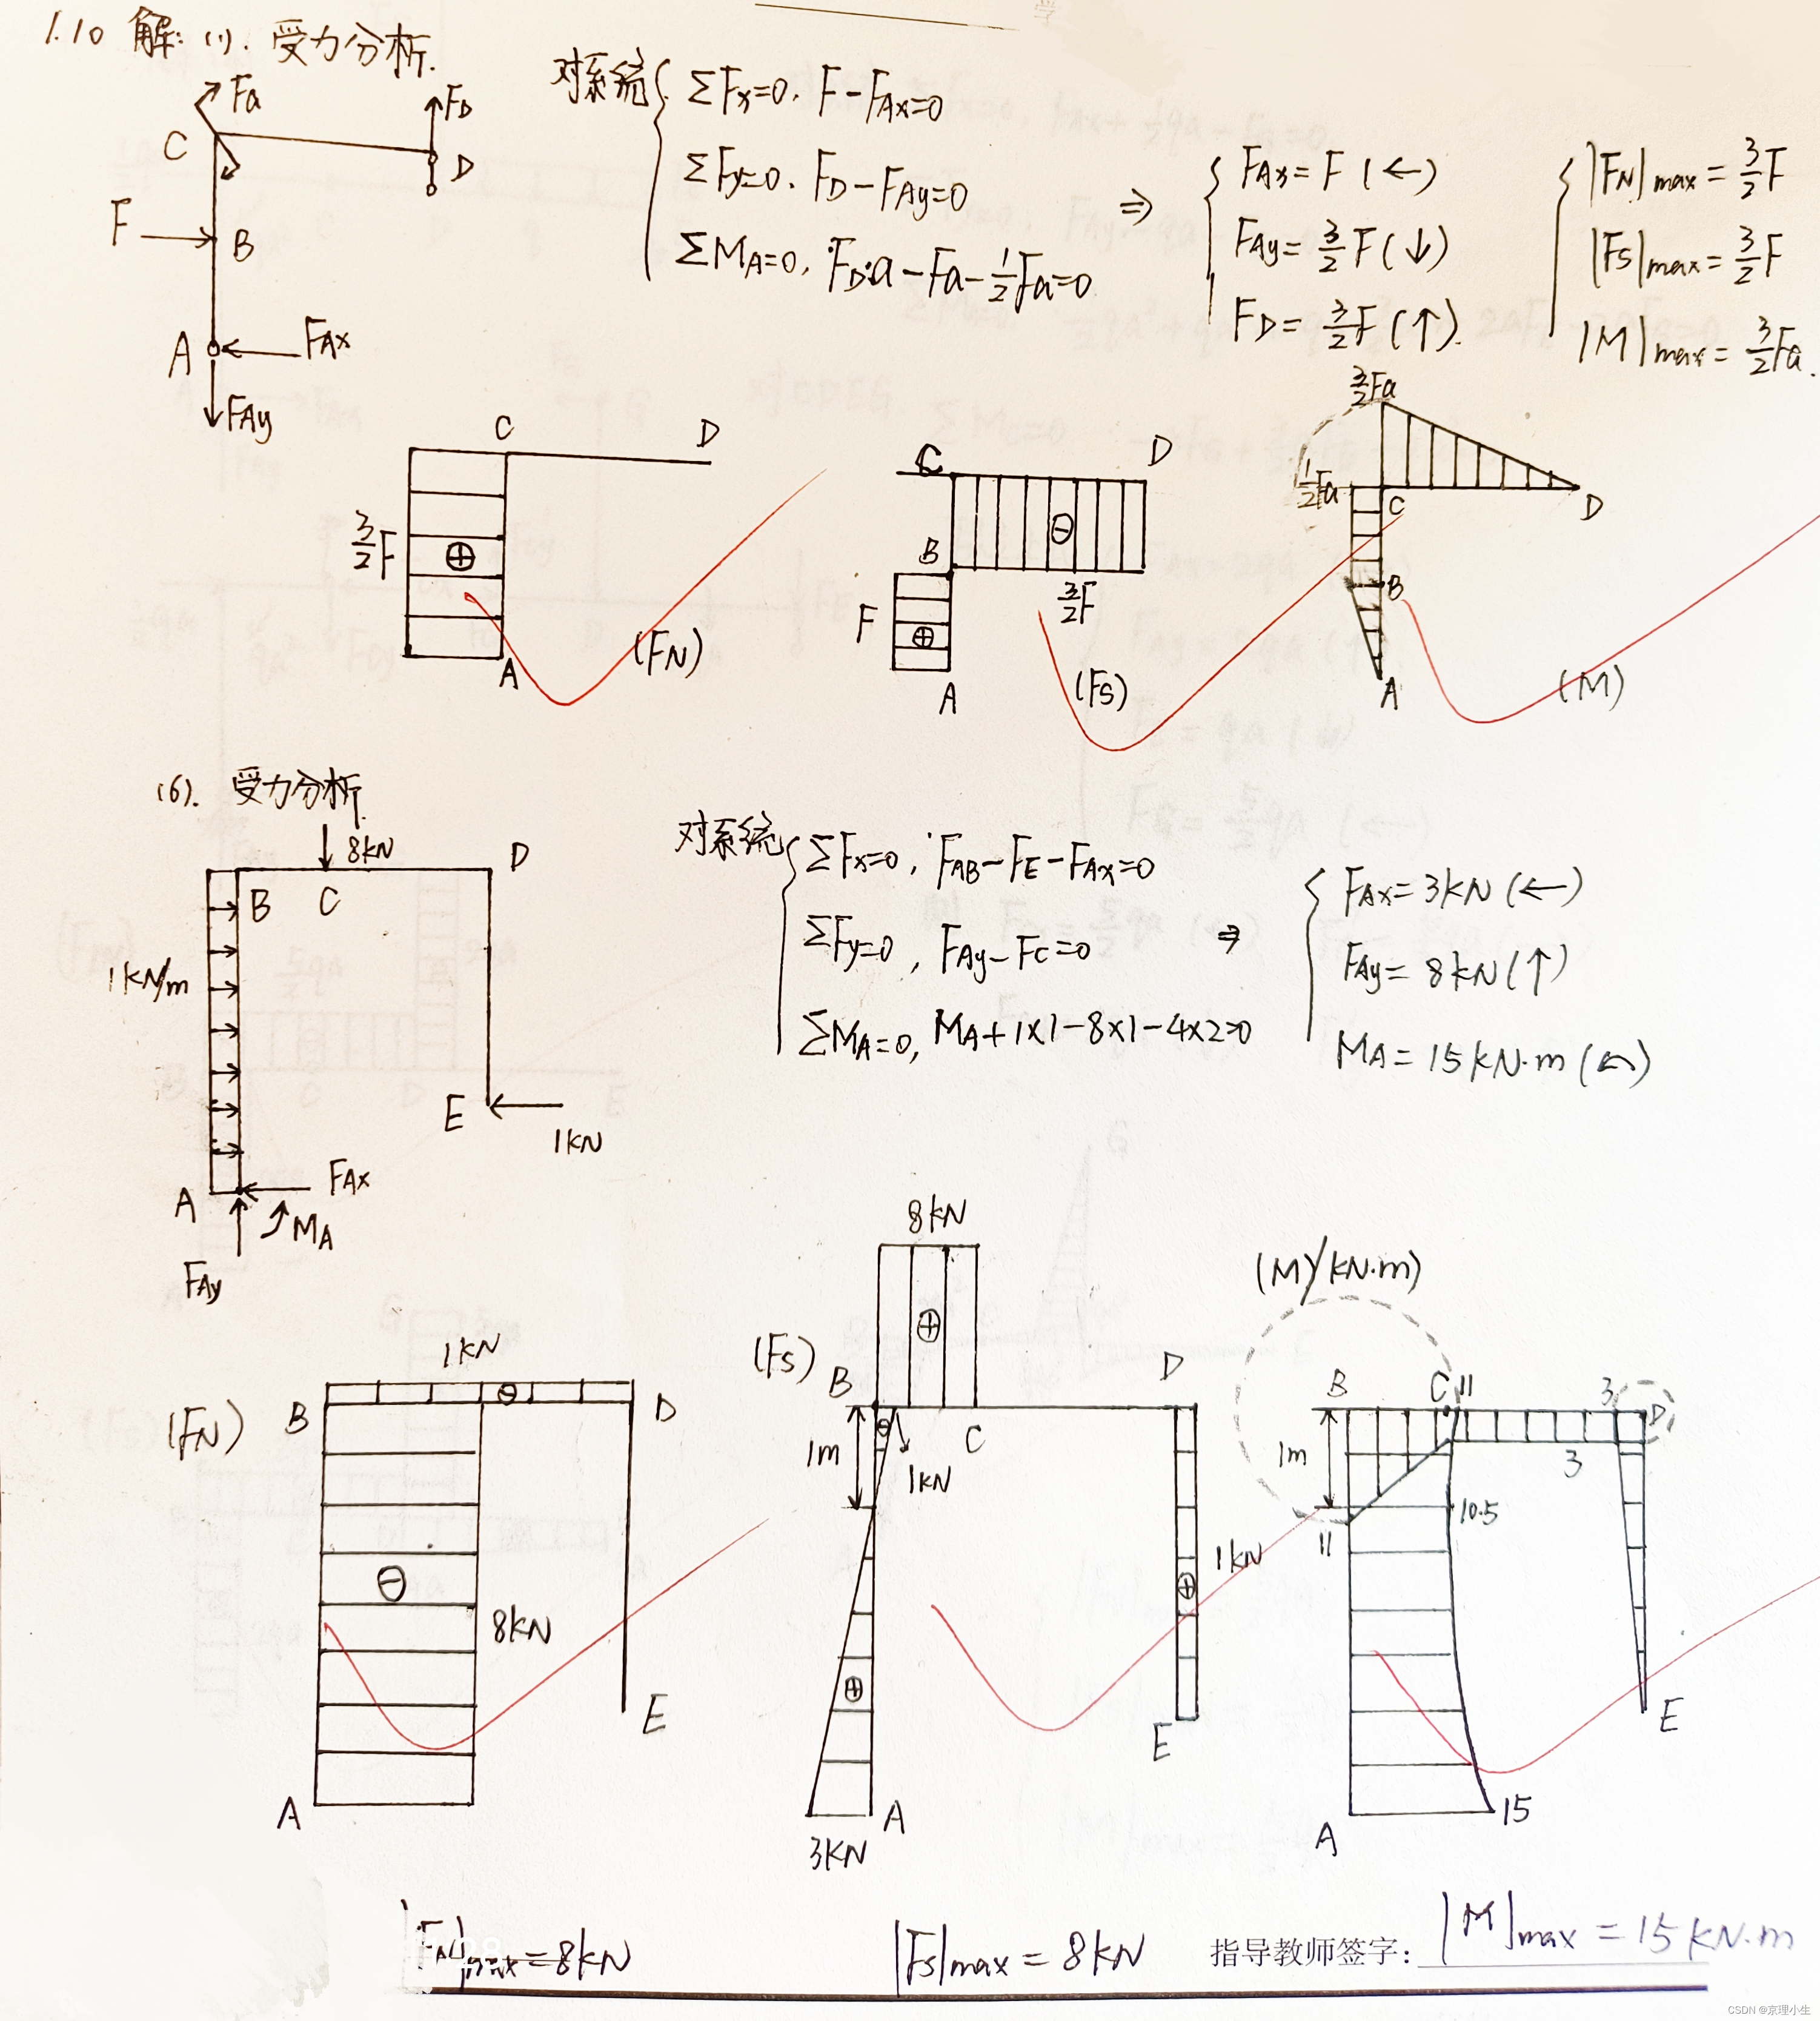 1.10 解: (1). 受力分析.
Fa
C
FD
D
F
B
A
FAx
FAy
对系统
ΣFx=0. F-FAx=0
ΣFy=0. FD-FAy=0
ΣMA=0, FD·a-Fa-1/2Fa=0
⇒
FAx=F (←)
FAy=3/2F(↓)
FD=3/2F(↑).
|FN|max=3/2F
|Fs|max=3/2F
|M|max=3/2Fa.
C D
3/2F
⊕
A
(FN)
C D
⊖
B
3/2F
F
⊕
A
(Fs)
3/2Fa
1/2Fa
C
D
B
A
(M)
(6). 受力分析.
8kN
D
B C
1kN/m
E
1kN
A
FAx
MA
FAy
对系统
ΣFx=0, FAB-FE-FAx=0
ΣFy=0, FAy-FC=0
ΣMA=0, MA+1×1-8×1-4×2=0
⇒
FAx=3kN(←)
FAy=8kN(↑)
MA=15kN·m(↶)
1kN
B ⊖ D
(FN)
⊖
8kN
E
A
8kN
⊕
(Fs)
B D
⊖
C
1m
1kN
1kN
⊕
⊕
E
A
3kN
(M/kN·m)
B C 11 3 D
1m
3
10.5
11
E
15
A
|FN|max=8kN
|Fs|max=8kN
指导教师签字:
|M|max=15kN·m
CSDN @京理小生